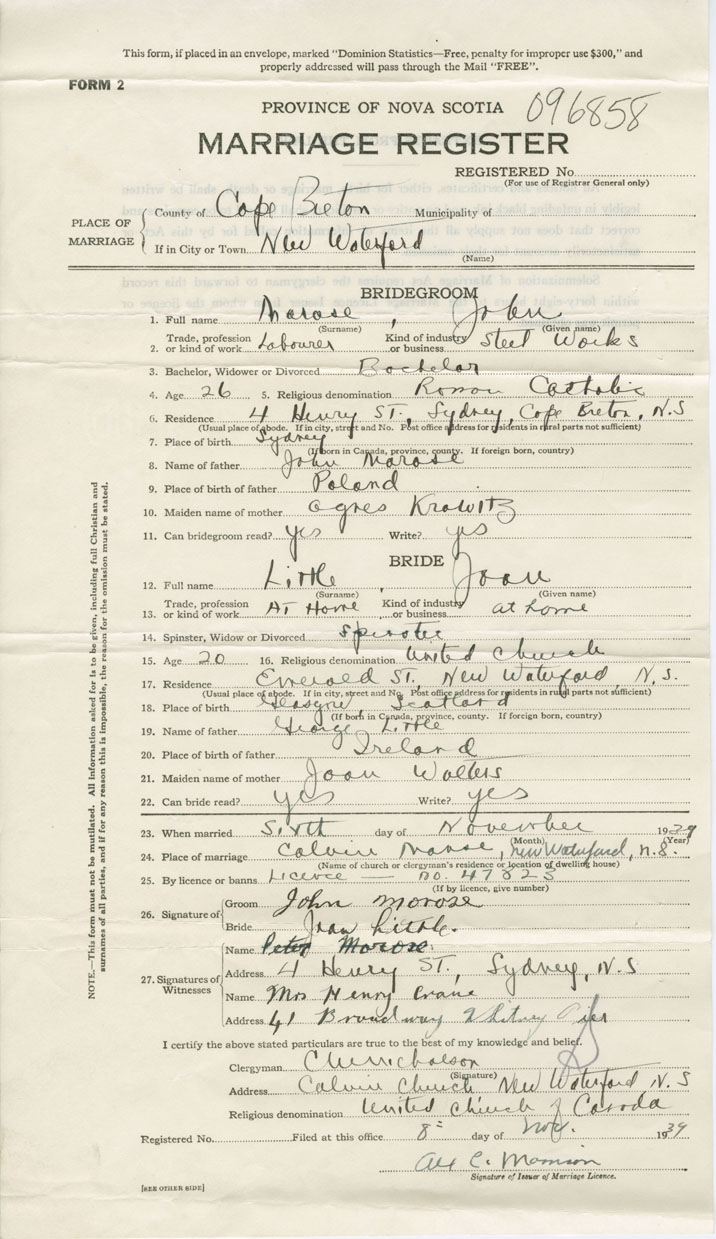 This form, if placed in an envelope, marked "Dominion Statistics—Free, penalty for improper use $300," and
properly addressed will pass through the Mail "FREE".
FORM 2
PROVINCE OF NOVA SCOTIA 096858
MARRIAGE REGISTER
REGISTERED No.
(For use of Registrar General only)
PLACE OF MARRIAGE
County of Cape Breton Municipality of
If in City or Town New Waterford
(Name)
BRIDEGROOM
1. Full name Morose, John
(Surname) (Given name)
2. Trade, profession or kind of work Labourer Kind of industry or business Steel Works
3. Bachelor, Widower or Divorced Bachelor
4. Age 26 5. Religious denomination Roman Catholic
6. Residence 4 Henry St., Sydney, Cape Breton, N.S
(Usual place of abode. If in city, street and No. Post office address for residents in rural parts not sufficient)
7. Place of birth Sydney
(If born in Canada, province, county. If foreign born, country)
8. Name of father John Morose
9. Place of birth of father Poland
10. Maiden name of mother Agnes Krawitz
11. Can bridegroom read? yes Write? yes
BRIDE
12. Full name Little Joan
(Surname) (Given name)
13. Trade, profession or kind of work At Home Kind of industry or business at home
14. Spinster, Widow or Divorced Spinster
15. Age 20 16. Religious denomination United Church
17. Residence Emerald St., New Waterford, N.S.
(Usual place of abode. If in city, street and No. Post office address for residents in rural parts not sufficient)
18. Place of birth Glasgow, Scotland
(If born in Canada, province, county. If foreign born, country)
19. Name of father George Little
20. Place of birth of father Ireland
21. Maiden name of mother Joan Walters
22. Can bride read? yes Write? yes
23. When married Sixth day of November 1939
(Month) (Year)
24. Place of marriage Calvin Manse, New Waterford, N.S.
(Name of church or clergyman's residence or location of dwelling house)
25. By licence or banns Licence — No. 47823
(If by licence, give number)
26. Signature of
Groom John Morose
Bride Joan Little.
27. Signatures of Witnesses
Name Peter Morose
Address 4 Henry St., Sydney, N.S
Name Mrs Henry Crane
Address 41 Broadway Whitney Pier
I certify the above stated particulars are true to the best of my knowledge and belief.
Clergyman Nicholson
(Signature)
Address Calvin Church New Waterford, N.S
Religious denomination United Church of Canada
Registered No. Filed at this office 8 day of Nov. 1939
Signature of Issuer of Marriage Licence.
[SEE OTHER SIDE]
NOTE.—This form must not be mutilated. All information asked for is to be given, including full Christian and
surnames of all parties, and if for any reason this is impossible, the reason for the omission must be stated.